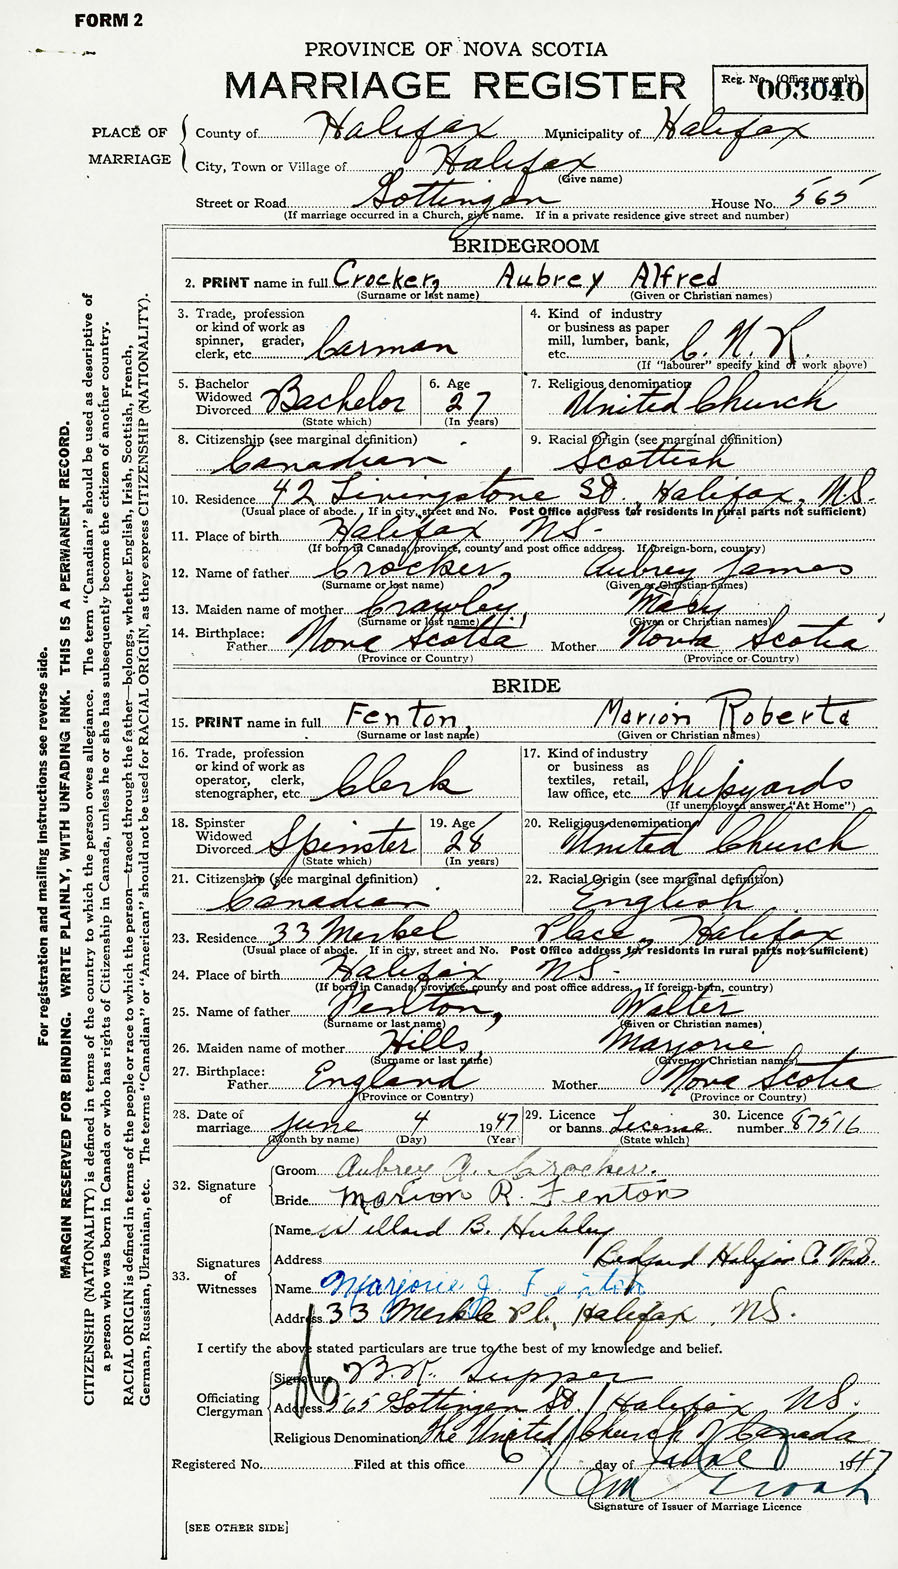 FORM 2
PROVINCE OF NOVA SCOTIA
MARRIAGE REGISTER
Reg. No. (Office use only)
003040
PLACE OF MARRIAGE
County of Halifax Municipality of Halifax
City, Town or Village of Halifax
(Give name)
Street or Road Gottingen House No. 565
(If marriage occurred in a Church, give name. If in a private residence give street and number)
BRIDEGROOM
2. PRINT name in full Crocker, Aubrey Alfred
(Surname or last name) (Given or Christian names)
3. Trade, profession or kind of work as spinner, grader, clerk, etc. Carman
4. Kind of industry or business as paper mill, lumber, bank, etc. C. N. R.
(If "labourer" specify kind of work above)
5. Bachelor Widowed Divorced Bachelor
(State which)
6. Age 27
(In years)
7. Religious denomination United Church
8. Citizenship (see marginal definition) Canadian
9. Racial Origin (see marginal definition) Scottish
10. Residence 42 Livingstone St., Halifax, N.S.
(Usual place of abode. If in city, street and No. Post Office address for residents in rural parts not sufficient)
11. Place of birth Halifax NS-
(If born in Canada, province, county and post office address. If foreign-born, country)
12. Name of father Crocker, Aubrey James
(Surname or last name) (Given or Christian names)
13. Maiden name of mother Crawley, Mary
(Surname or last name) (Given or Christian names)
14. Birthplace: Father Nova Scotia Mother Nova Scotia
(Province or Country) (Province or Country)
BRIDE
15. PRINT name in full Fenton, Marion Roberta
(Surname or last name) (Given or Christian names)
16. Trade, profession or kind of work as operator, clerk, stenographer, etc. Clerk
17. Kind of industry or business as textiles, retail, law office, etc. Shipyards
(If unemployed answer "At Home")
18. Spinster Widowed Divorced Spinster
(State which)
19. Age 28
(In years)
20. Religious denomination United Church
21. Citizenship (see marginal definition) Canadian
22. Racial Origin (see marginal definition) English
23. Residence 33 Merkel Place, Halifax
(Usual place of abode. If in city, street and No. Post Office address for residents in rural parts not sufficient)
24. Place of birth Halifax NS-
(If born in Canada, province, county and post office address. If foreign-born, country)
25. Name of father Fenton, Walter
(Surname or last name) (Given or Christian names)
26. Maiden name of mother Hills, Marjorie
(Surname or last name) (Given or Christian names)
27. Birthplace: Father England Mother Nova Scotia
(Province or Country) (Province or Country)
28. Date of marriage June 4 1947
(Month by name) (Day) (Year)
29. Licence or banns License
(State which)
30. Licence number 87516
32. Signature of
Groom Aubrey A. Crocker.
Bride Marion R. Fenton
33. Signatures of Witnesses
Name Willard B. Hubley
Address Bedford Halifax C. N.S.
Name Marjorie J. Fenton
Address 33 Merkle Pl., Halifax, NS.
I certify the above stated particulars are true to the best of my knowledge and belief.
Officiating Clergyman
Signature Tupper
Address 565 Gottingen St. Halifax NS.
Religious Denomination The United Church of Canada
Registered No. Filed at this office 6 day of June 1947
Signature of Issuer of Marriage Licence
[SEE OTHER SIDE]
For registration and mailing instructions see reverse side.
MARGIN RESERVED FOR BINDING. WRITE PLAINLY, WITH UNFADING INK. THIS IS A PERMANENT RECORD.
CITIZENSHIP (NATIONALITY) is defined in terms of the country to which the person owes allegiance. The term "Canadian" should be used as descriptive of
a person who was born in Canada or who has rights of Citizenship in Canada, unless he or she has subsequently become the citizen of another country.
RACIAL ORIGIN is defined in terms of the people or race to which the person—traced through the father—belongs, whether English, Irish, Scottish, French,
German, Russian, Ukrainian, etc. The terms "Canadian" or "American" should not be used for RACIAL ORIGIN, as they express CITIZENSHIP (NATIONALITY).